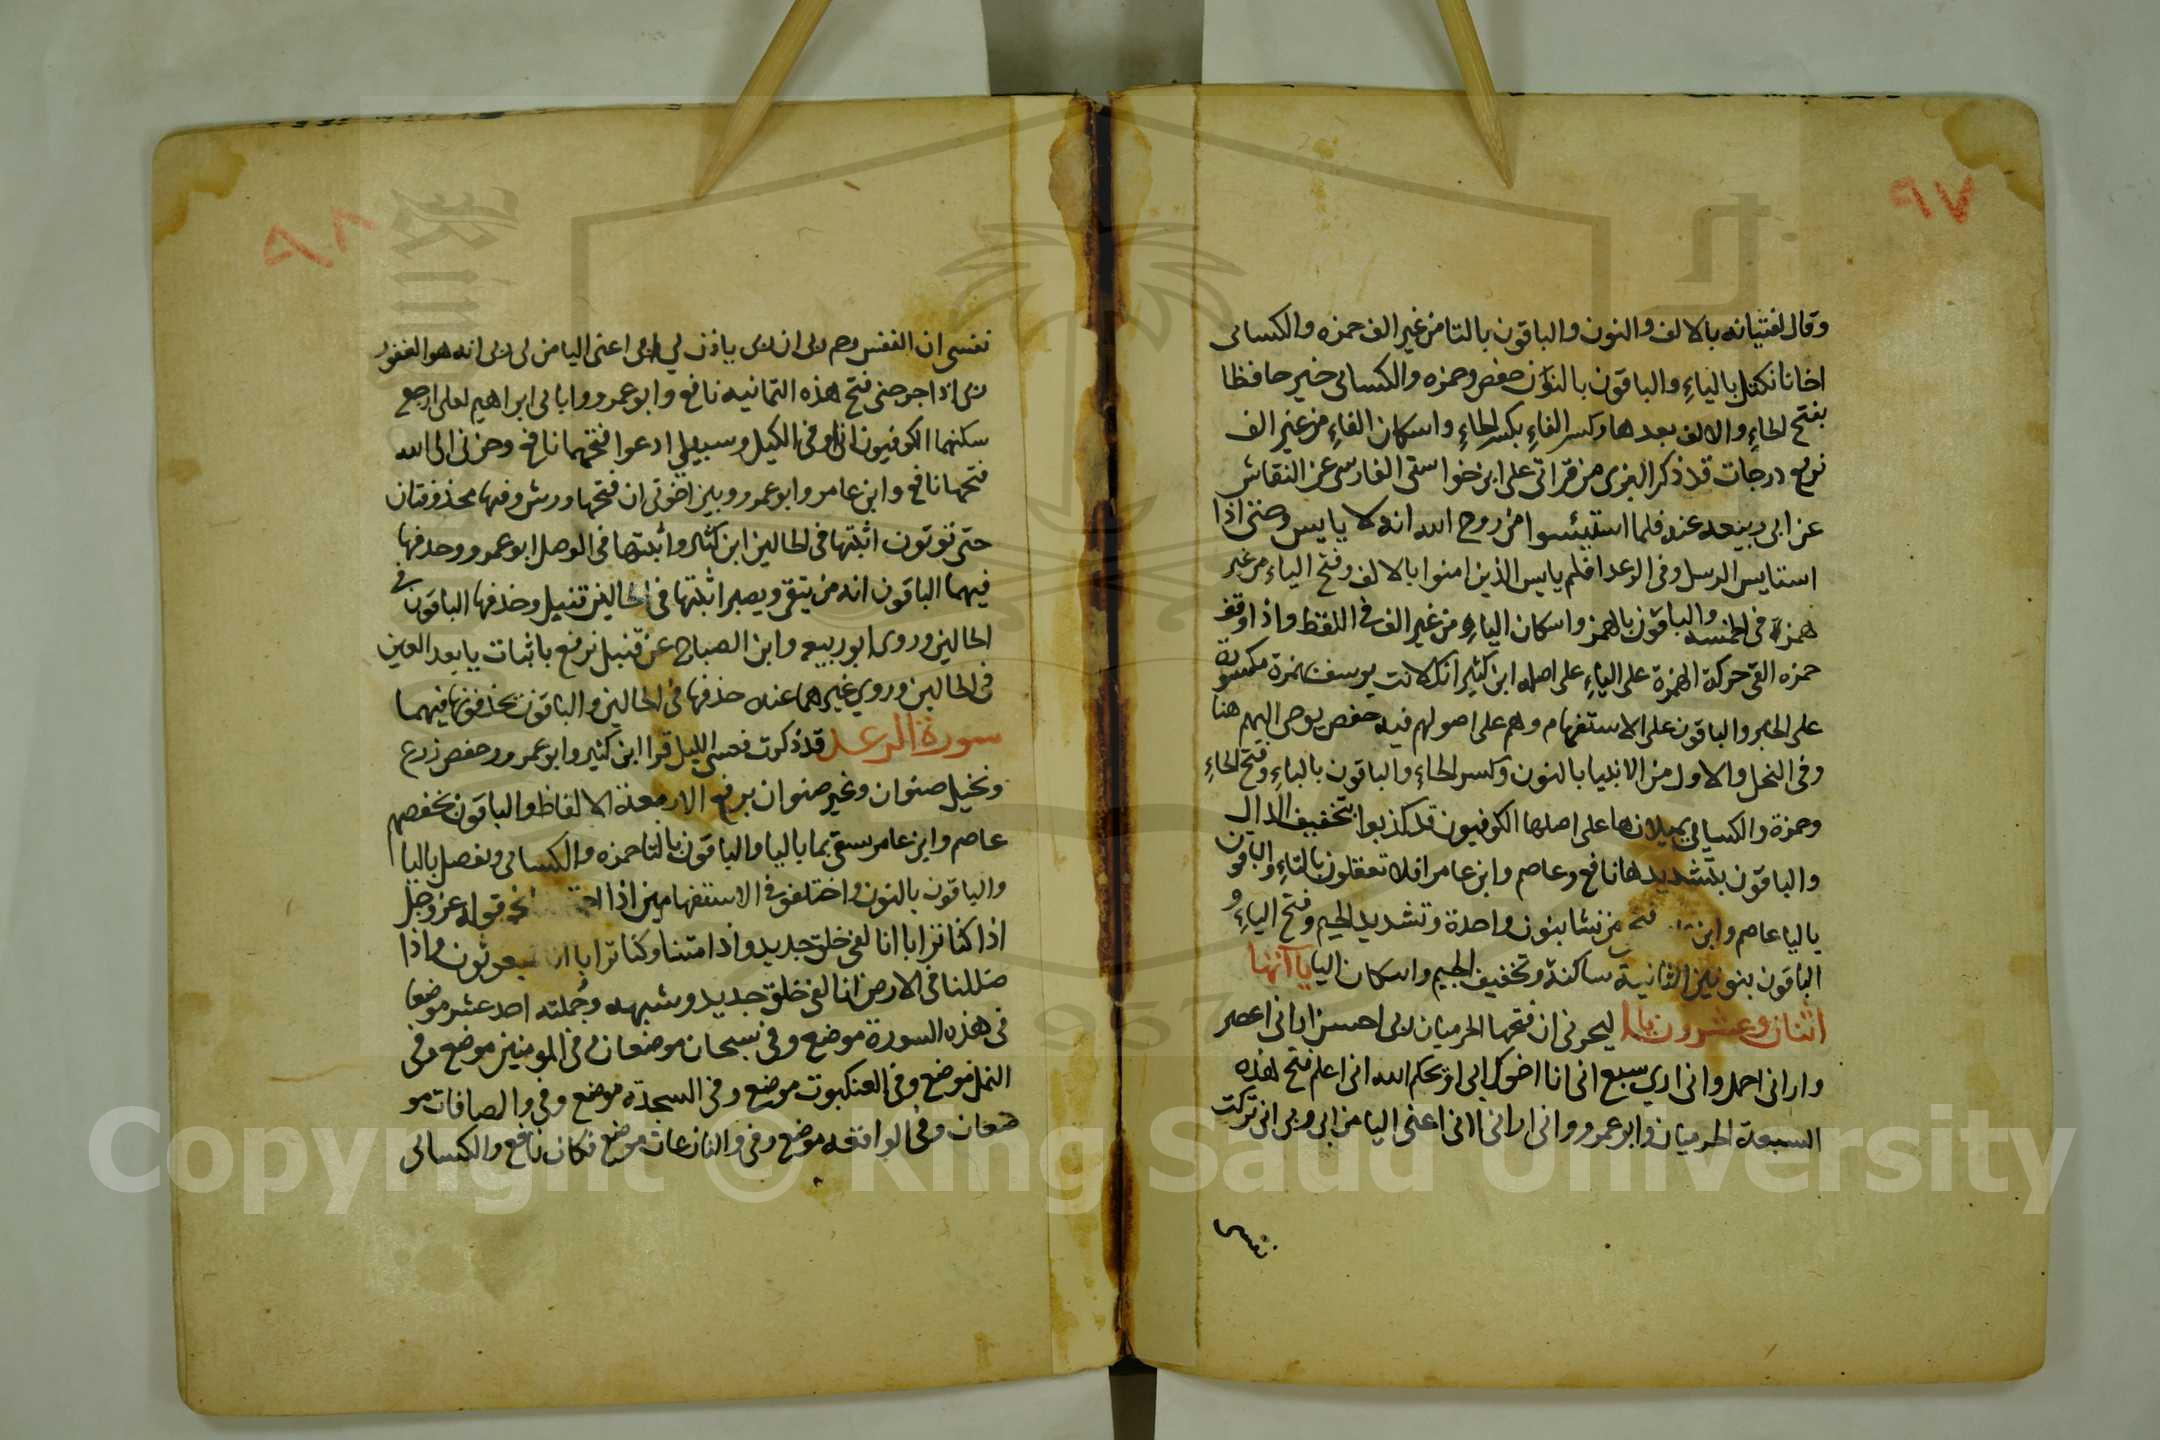 ٩٧
وقال لفتيانه بالالف والنون والباقون بالتا من غير الف حمزه والكسائى
اخانا نكتل بالياءِ والباقون بالنون حفص وحمزه والكسائى خير حافظا
بفتح الحاءِ والالف بعدها وكسر الفاءِ بكسر الحاءِ واسكان الفاءِ من غير الف
نرفع درجات قد ذكر البزى من قراتى على ابن خواستى الفارسى عن النقاش
عن ابى ربيعه عنه فلما استيئسوا من روح الله انه لا يايس وحتى اذا
استايس الرسل وفى الرعد افلم يايس الذين امنوا بالالف وفتح الياءِ من غير
همزة فى الخمسه والباقون بالهمز واسكان الياءِ من غير الف فى اللفظ واذا وقف
حمزه القى حركة الهمزة على الياءِ على اصله ابن كثير انك لانت يوسف بهمزة مكسورة
على الخبر والباقون على الاستفهام وهم على اصولهم فيه حفص يوحى اليهم هنا
وفى النحل والاول من الانبيا بالنون وكسر الحاءِ والباقون بالياءِ وفتح الحاءِ
وحمزة والكسائى يميلانها على اصلها الكوفيون قد كذبوا بتخفيف الذال
والباقون بتشديدها نافع وعاصم وابن عامر افلا تعقلون بالتاءِ والباقون
باليا عاصم وابن فنجى من نشا بنون واحدة وتشديد الجيم وفتح الياءِ و
الباقون بنونين الثانية ساكنة وتخفيف الجيم واسكان اليا يا آتها
اثنان وعشرون يا ليحزنى ان فتحها الحرميان ربى احسن ارانى اعصر
وارانى احمل وانى ارى سبع انى انا اخوك ابى او يحكم الله انى اعلم فتح هذه
السبعة الحرميان وابو عمرو وانى ارانى انى اعنى اليا من ابى وربى انى تركت
نفسى
٩٨
نفسى ان النفس رحم ربى ان ربى ياذن لي ابى اعنى اليا من لى ربى انه هو الغفور
بى اذ اخرجنى فتح هذه الثمانيه نافع وابو عمرو وابائى ابراهيم لعلى ارجع
سكنهما الكوفيون انى اوفى الكيل وسبيلي ادعوا فتحهما نافع وحزنى الى الله
فتحها نافع وابن عامر وابو عمرو وبين اخوتى ان فتحها ورش وفيها محذوفتان
حتى توتون اثبتها فى الحالين ابن كثير واثبتها فى الوصل ابو عمرو وحذفها
فيهما الباقون انه من يتقى ويصبر اثبتها فى الحالين قنبل وحذفها الباقون فى
الحالين وروى ابو ربيعه وابن الصباح عن قنبل نرتع باثبات يا بعد العين
فى الحالين وروي غيرهما عنه حذفها فى الحالين والباقون يحذفونها فيهما
سورة الرعد قد ذكرت يغشى الليل قرا ابن كثير وابو عمرو وحفص زرع
ونخيل صنوان وغير صنوان برفع الاربعة الالفاظ والباقون بخفضهم
عاصم وابن عامر يسقى بما باليا والباقون بالتا حمزه والكسائى ويفضل باليا
والباقون بالنون واختلفوا فى الاستفهامين اذا نحو قوله عز وجل
اذا كنا ترابا انا لفى خلق جديد واذا متنا وكنا ترابا انا لمبعوثون واذا
ضللنا فى الارض انا لفى خلق جديد وشبهه وجُملته احد عشر موضعا
فى هذه السورة موضع وفى سبحان موضعان وفى المومنين موضع وفى
النمل موضع وفى العنكبوت موضع وفى السجدة موضع وفى والصافات مو
ضعان وفى الواقعه موضع وفى والنازعات موضع فكان نافع والكسائى
Copyright © King Saud University
1957